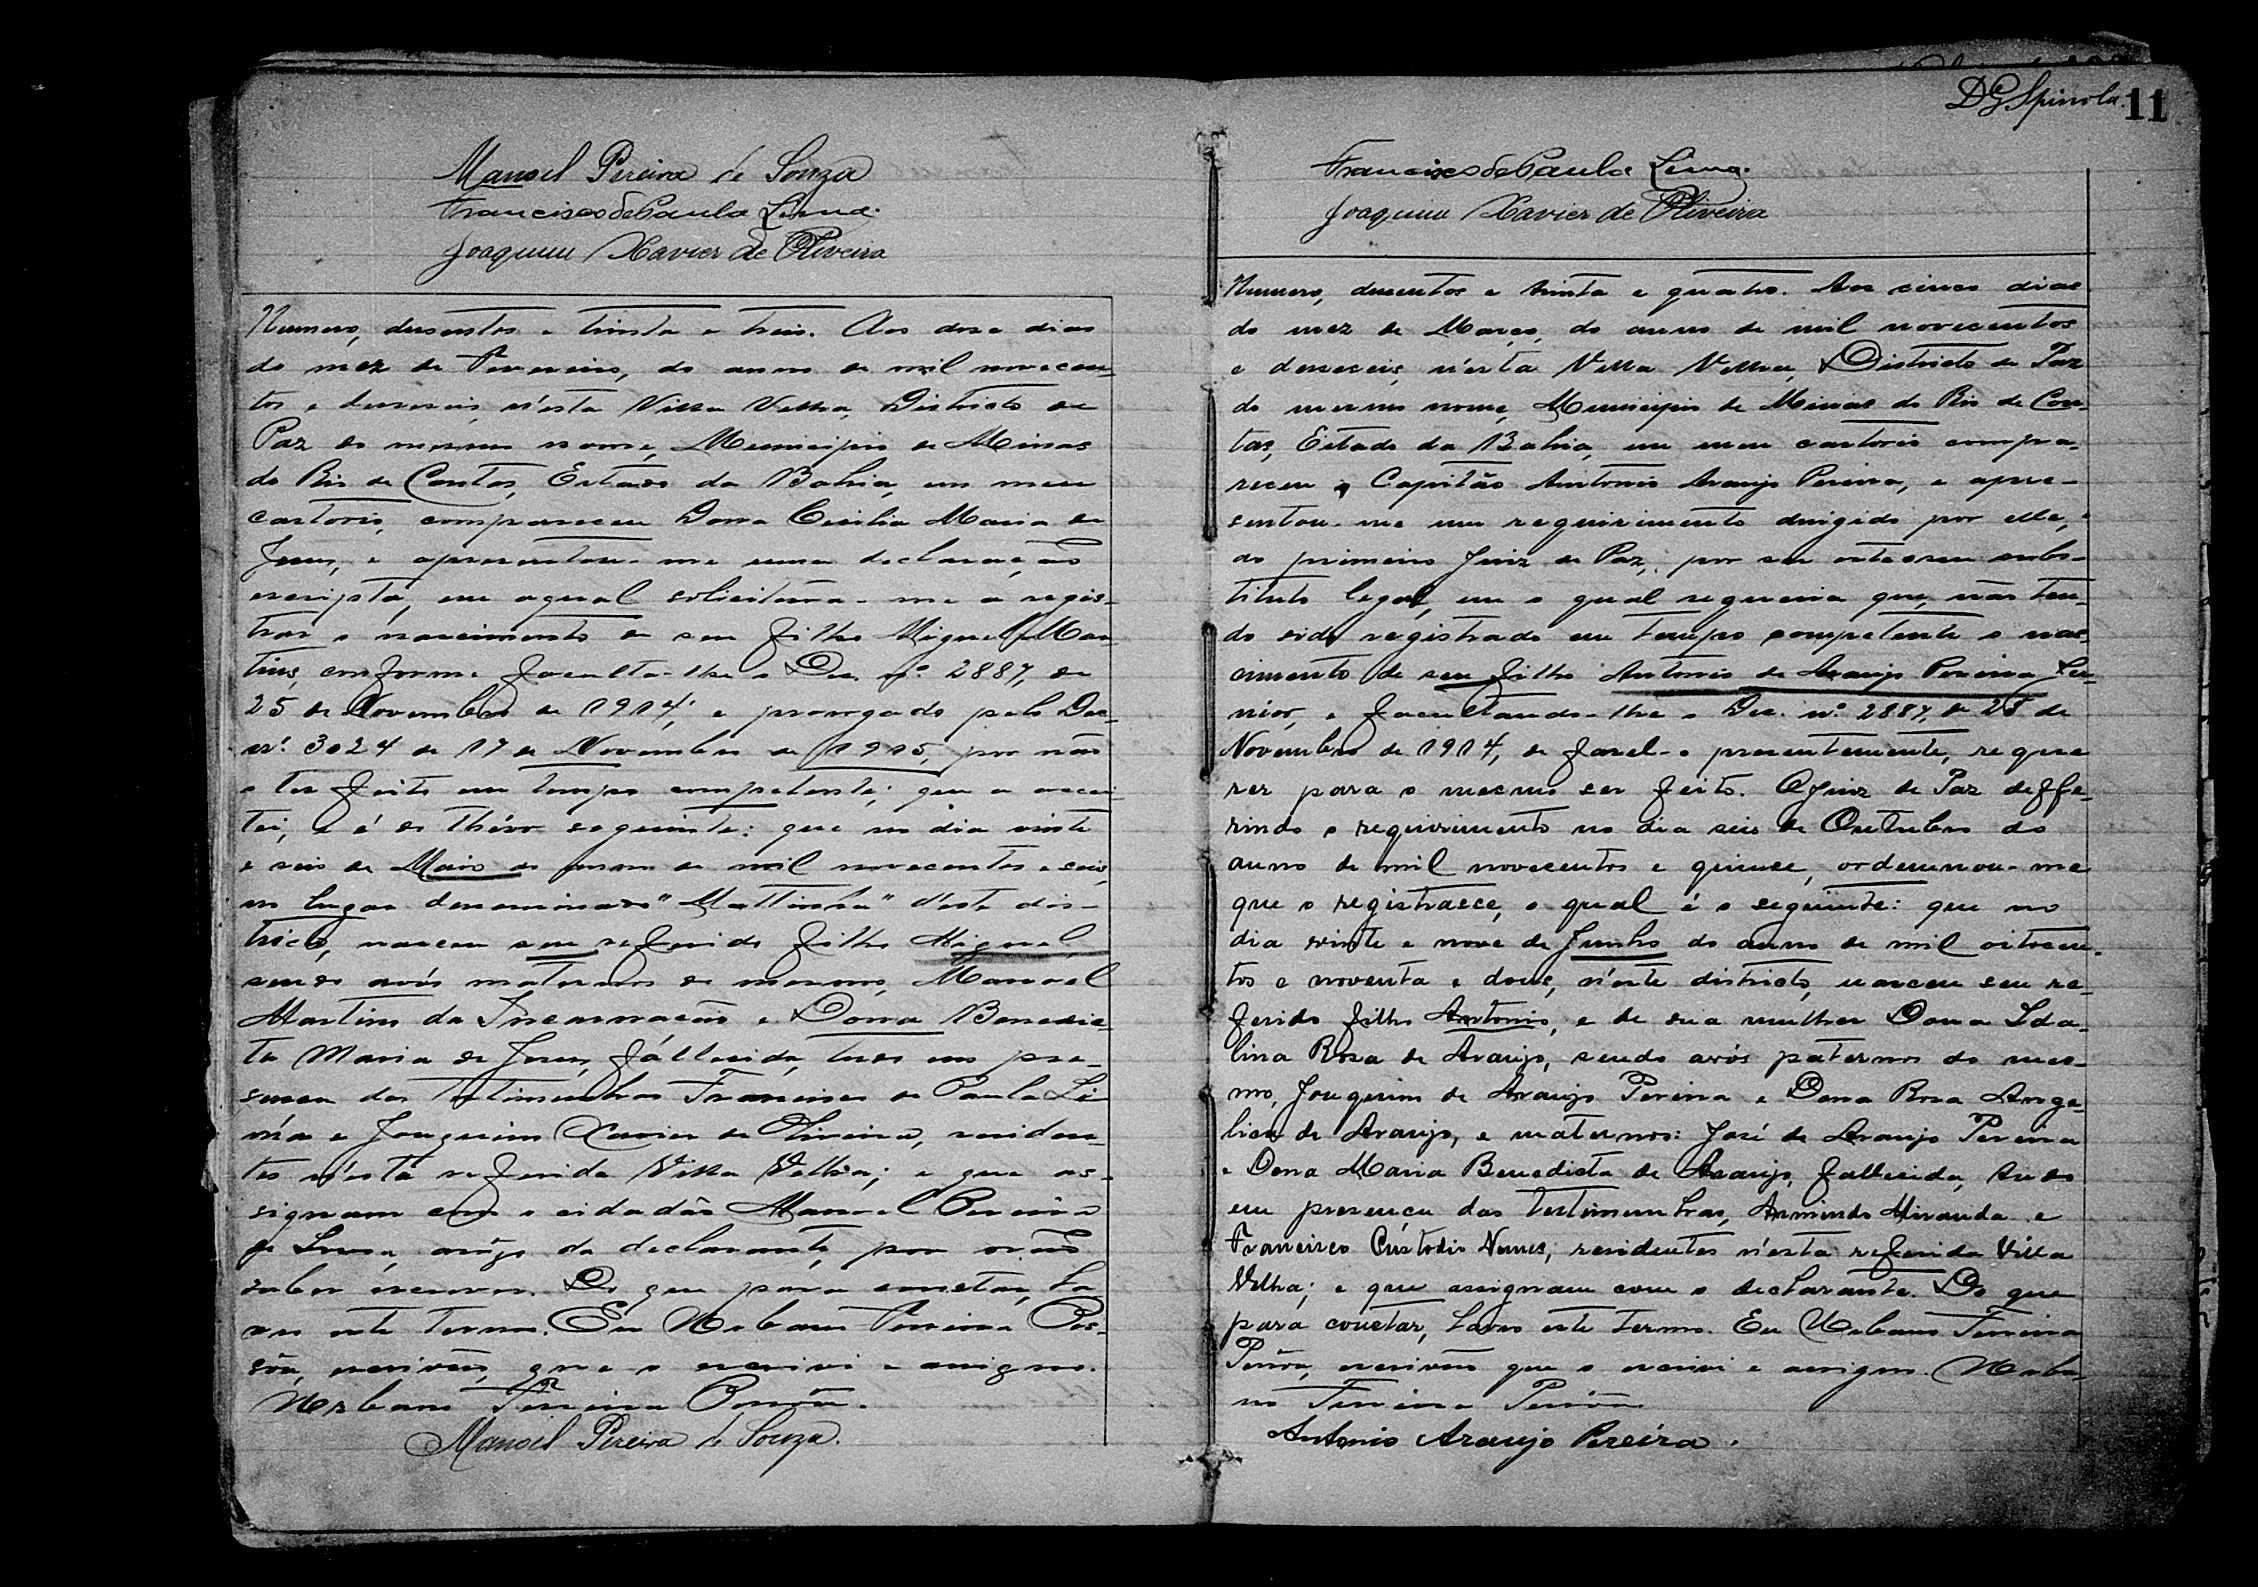 Manoel Pereira de Souza
Francisco de Paula Lima.
Joaquim Xavier de Oliveira
Numero, dusentos e trinta e treis. Aos dose dias
do mez de Fevereiro, do anno de mil novecen-
tos e deseseis, n'esta Villa Velha, Districto de
Paz do mesmo nome, Municipio de Minas
do Rio de Contas, Estado da Bahia, em meu
cartorio, compareceu Dona Cecilia Maria de
Jesus, e apresentou-me uma declaração
escripta, em a qual solicitava-me a regis-
trar o nascimento de seu filho Miguel Mar-
tins, conforme faculta-lhe o Dec. nº 2887, de
25 de Novembro de 1914, e prorogado pelo Dec.
nº. 3024 de 17 de Novembro de 1915, por não
o ter feito em tempo competente; que a accei-
tei, e é do theôr seguinte: que no dia vinte
e seis de Maio do anno de mil novecentos e seis,
no lugar denominado "Mattinha" d'este dis-
tricto, nasceu seu referido filho Miguel,
sendo avós maternos do mesmo, Manoel
Martins da Incarnação e Dona Benedic-
ta Maria de Jesus, fállecida, tudo em pre-
sença das testimunhas Francisco de Paula Li-
ma e Joaquim Xavier de Oliveira, residen-
tes n'esta referida Villa Velha; e que as-
signam com o cidadão Manoel Pereira
de Sousa, a rôgo da declarante, por não
saber escrever. Do que para constar, la-
vro este termo. Eu Urbano Ferreira Pes-
sôa, escrivão, que o escrivi e assigno.
Urbano Ferreira Pessôa.
Manoel Pereira de Souza.
DG Spinola. 11
Francisco de Paula Lima.
Joaquim Xavier de Oliveira
Numero, dusentos e trinta e quatro. Aos cinco dias
do mez de Março, do anno de mil novecentos
e deseseis, n'esta Villa Velha, Districto de Paz
do mesmo nome, Municipio de Minas do Rio de Con-
tas, Estado da Bahia, em meu cartorio compa-
receu o Capitão Antonio Araujo Pereira, e apre-
sentou-me um requirimento dirigido por elle,
ao primeiro Juiz de Paz, por seu
tituto legal, em o qual requeria que, não ten-
do sido registrado em tempo competente o nas-
cimento de seu filho Antonio de Araujo Pereira Ju-
nior, e facultando-lhe o Dec. nº 2887, de 25 de
Novembro de 1914, de fasel-o presentemente, reque-
rer para o mesmo ser feito. O Juiz de Paz deffe-
rindo o requirimento no dia seis de Outubro do
anno de mil novecentos e quinse, ordennou-me
que o registrasse, o qual é o seguinte: que no
dia vinte e nove de Junho do anno de mil oitocen-
tos e noventa e dous, n'este districto, nasceu seu re-
ferido filho Antonio, e de sua mulher Dona Ida-
lina Rosa de Araujo, sendo avós paternos do mes-
mo, Joaquim de Araujo Pereira e Dona Rosa Ange-
lica de Araujo, e maternos: José de Araujo Pereira
e Dona Maria Benedicta de Araujo, fallecida, tudo
em presença das testimunhas, Armindo Miranda e
Francisco Custodio Nunes, residentes n'esta referida Villa
Velha; e que assignam com o declarante. Do que
para constar, lavro este termo. Eu Urbano Ferreira
Pessôa, escrivão que o escrivi e assigno. Urba-
no Ferreira Pessôa
Antonio Araujo Pereira.